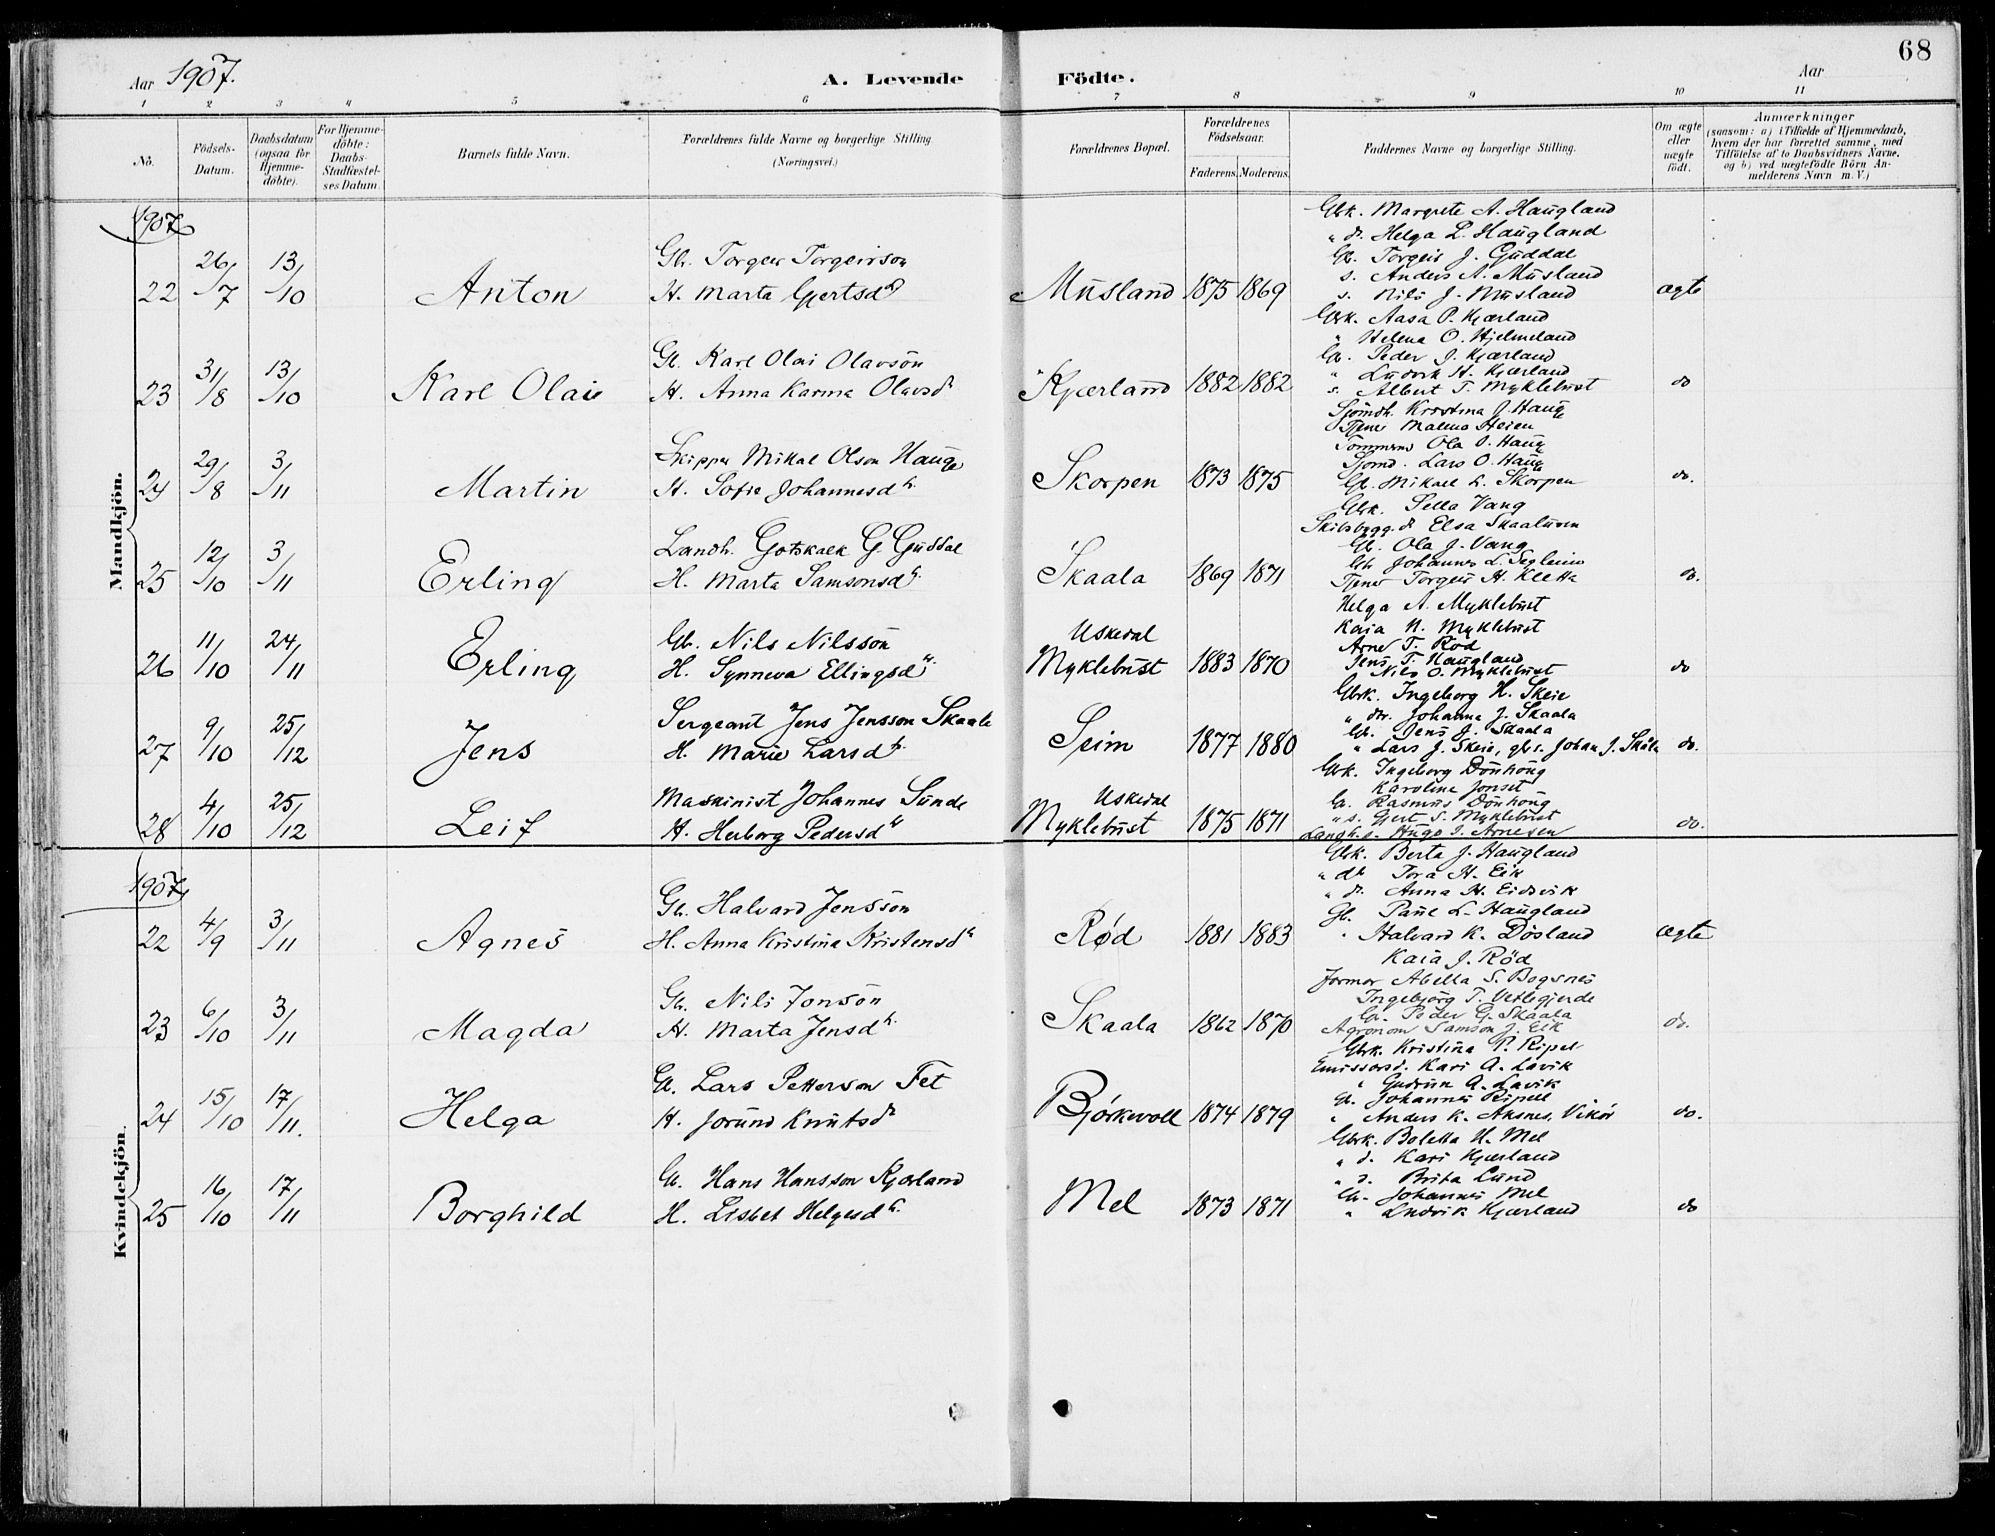 68
Aar 1907.
A. Levende Födte.
Aar
1 2 3 4 5 6 7 8 9 10 11
No.
Födsels-
Datum.
Daabsdatum
(ogsaa for
Hjemme-
döbte).
For Hjemme-
döbte:
Daabs-
Stadfæstel-
ses Datum.
Barnets fulde Navn.
Forældrenes fulde Navne og borgerlige Stilling
(Næringsvei.)
Forældrenes Bopæl.
Forældrenes
Födselsaar.
Faderens. Moderens.
Faddernes Navne og borgerlige Stilling.
Om ægte
eller
uægte
født.
Anmærkninger
(saasom: a) i Tilfælde af Hjemmedaab,
hvem der har forrettet samme, med
Tilföielse af to Daabsvidners Navne,
og b) ved uægtefödte Börn An-
melderens Navn m. V.)
Mandkjön.
1907
22 26/7 13/10 Anton
Gb. Torgeir Torgeirson
H. Marta Gjertsd
Musland 1875 1869
Gbk. Margrete A. Haugland
" d. Helga L. Haugland
Gb. Torgeir J. Guddal
s. Anders A. Musland
s. Nils J. Musland
ægte
23 31/8 13/10 Karl Olai
Gb. Karl Olai Olavsön
H. Anna Karina Olavsd
Kjærland 1882 1882
Gbk. Aasa P. Kjærland
" Helena O. Hjelmeland
Gb. Peder J. Kjærland
" Ludvik H. Kjærland
s. Albert T. Myklebust
do
24 29/8 3/11 Martin
Skipper Mikal Olson Hauge
H. Sofie Johannesd
Skorpen 1873 1875
Sjömdh. Kristina J. Hauge
Tjener Malena Heien
Tömmerm Ola O. Hauge
Sjömd. Lars O. Hauge
Gb. Mikael L. Skorpen
do.
25 12/10 3/11 Erling
Landh. Gotskalk G. Guddal
H. Marta Samsonsd
Skaala 1869 1871
Gbk. Sella Vang
Skibsbygg. d. Elsa Skaaluren
Gb. Ola J. Vang
Gb. Johannes L. Segleim
Tjener Torgeir H. Kletta
do.
26 11/10 24/11 Erling
Gb. Nils Nilssön
H. Synneva Ellingsd
Uskedal
Myklebust 1883 1870
Helga A. Myklebust
Kaia N. Myklebust
Arne T. Röd
Jens T. Haugland
Nils O. Myklebust
do
27 9/10 25/12 Jens
Sergeant Jens Jensson Skaala
H. Marie Larsd
Seim 1877 1880
Gbk. Ingeborg H. Skeie
" dtr. Johanna J. Skaala
Gb. Jens J. Skaala
" Lars J. Skeie, gbs. Johan J. Skåla
do.
28 4/10 25/12 Leif
Maskinist Johannes Sunde
H. Herborg Pedersd
Uskedal
Myklebust 1875 1871
Gbk. Ingeborg Dönhöug
Karoline Jonset
Gb. Rasmus Dönhöug
" s. Gjert S. Myklebust
Landh. s. Hugo J. Arnesen
do.
Kvindekjön.
1907
22 4/9 3/11 Agnes
Gb. Halvard Jenssön
H. Anna Kristina Kristensd
Rød 1881 1883
Gbk. Berta J. Haugland
" dt. Tora H. Eik
" d. Anna H. Eidsvik
Gb. Paul L. Haugland
" Halvard K. Døsland
Kaia J. Rød
ægte
23 6/10 3/11 Magda
Gb. Nils Jonsön
H. Marta Jensd
Skaala 1862 1870
Jormor Abella S. Bogsnes
Ingebjörg T. Vetlegjerde
Gb. Peder G. Skaala
Agronom Samson J. Eik
do.
24 15/10 17/11. Helga
Gb. Lars Petterson Fet
H. Jorund Knutsd
Bjørkevoll 1874 1879
Gbk. Kristina P. Ripel
Emissærd. Kari A. Lavik
" Gudrun A. Lavik
Gb. Johannes Ripel
" Anders K. Aksnes, Vikör
do.
25 16/10 17/11 Borghild
Gb. Hans Hansson Kjærland
H. Lisbet Helgesd
Mel 1873 1871
Gbk. Boletta H. Mel
" d. Kari Kjærland
" d. Brita Lund
Gb. Johannes Mel
" Ludvik Kjærland
do